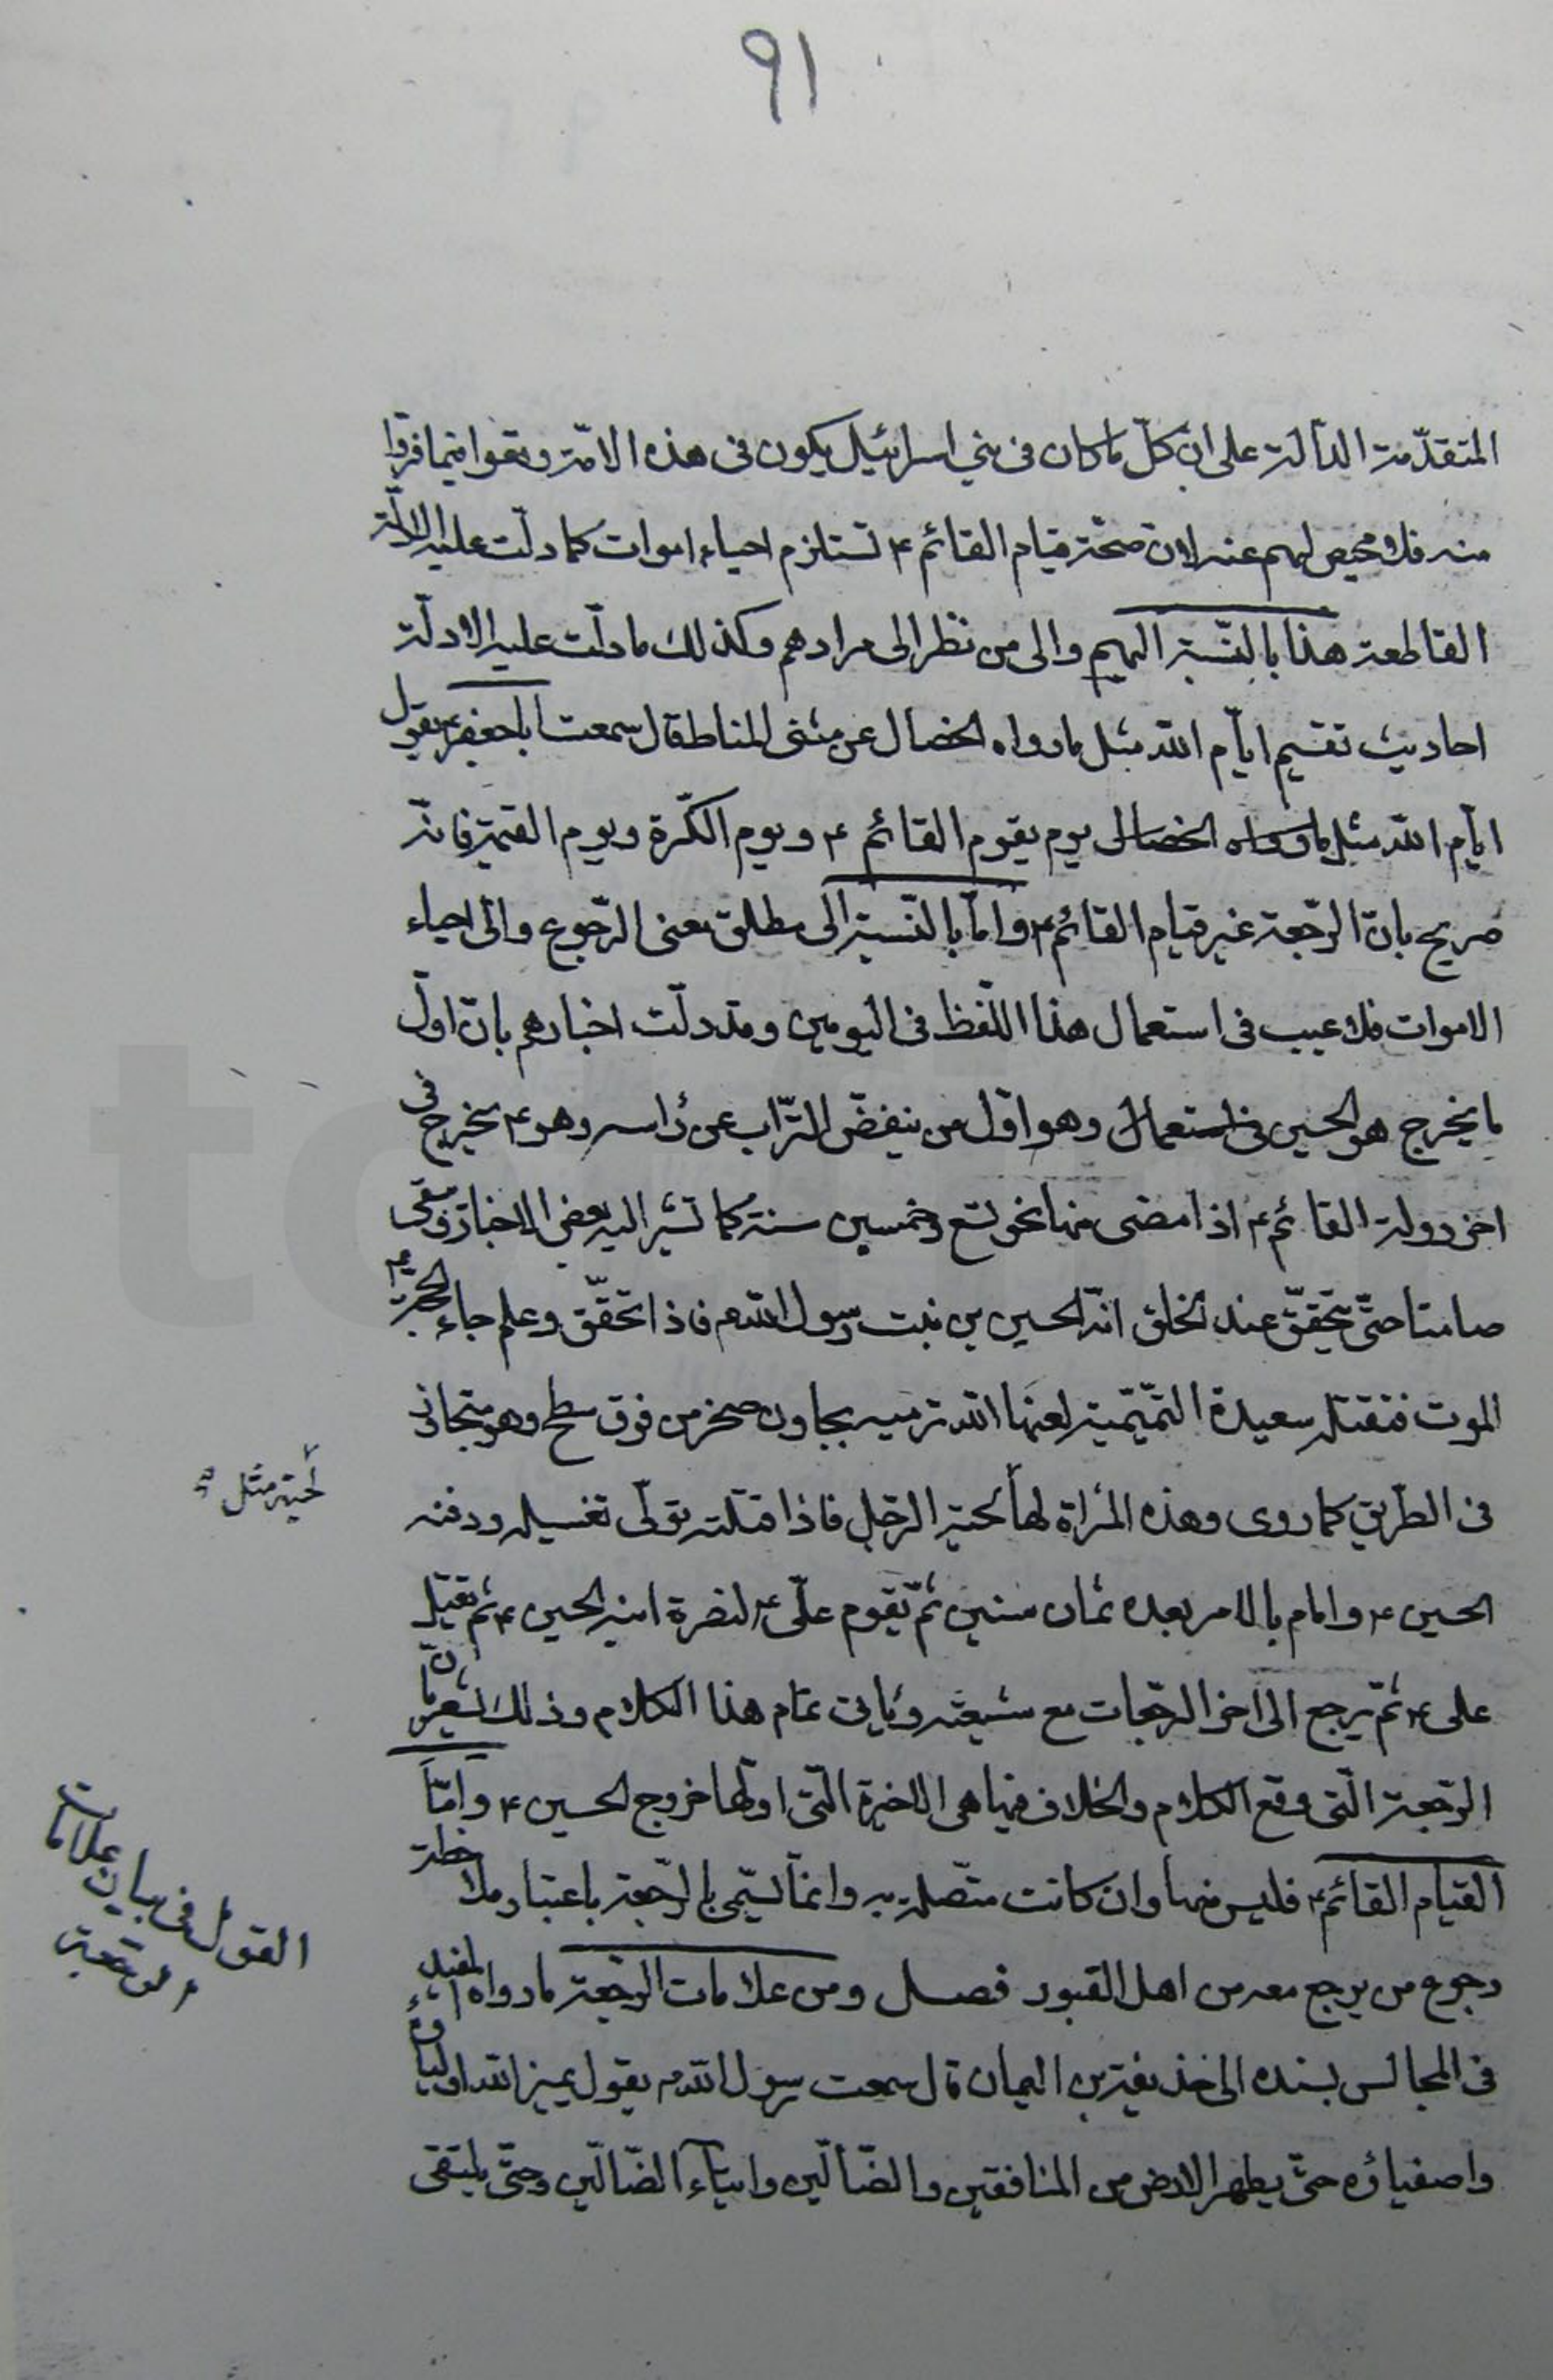 ٩١
المتقدّمة الدالّة على انّ كلّ ما كان فى بني اسرائيل يكون فى هذه الامّة وقعوا فيما فرّوا
منه فلا محيص لهم عنه لان صحّة قيام القائم ع تستلزم احياء اموات كما دلّت عليه الادلّة
القاطعة هذا بالنّسبة اليهم والى من نظر الى مرادهم وكذلك ما دلّت عليه الادلّة
احاديث تقسيم ايّام اللّه مثل ما رواه الخصال عن مثنى الحناط قال سمعت اباجعفر ع يقول
ايّام اللّه مثل ما رواه الخصال يوم يقوم القائم ع ويوم الكرّة ويوم القيمة فانّه
صريح بانّ الرّجعة غير قيام القائم ع وامّا بالنّسبة الى مطلق معنى الرّجوع والى احياء
الاموات فلا عيب فى استعمال هذا اللّفظ فى اليومين وقد دلّت اخبارهم بانّ اوّل
ما يخرج هو الحسين فى استعمال وهو اوّل من ينفضّ التّراب عن رأسه وهو ع يخرج فى
اخر دولة القائم ع اذا مضى منها نحو تسع وخمسين سنة كما تشير اليه بعض الاخبار ويبقى
صامتا حتّى يتحقّق عند الخلق انّه الحسين بن بنت رسول اللّه ص فاذا تحقّق وعلم جاء الحجّة ع
الموت فتقتله سعيدة التّميميّة لعنها اللّه ترميه بجاون صخر من فوق سطح وهو متجاوز
فى الطّريق كما روى وهذه المرأة لها لحية الرّجل فاذا قتلته تولّى تغسيله ودفنه
لحية مثل
الحسين ع وامام بالامر بعده ثمان سنين ثمّ يقوم علىّ ع لنصرة ابنه الحسين ع ثمّ يقتل
على ع ثمّ يرجع الى اخر الرّجعات مع شيعته ويأتى تمام هذا الكلام وذلك لتعرف انّ
الرّجعة الّتى وقع الكلام والخلاف فيها هى الاخيرة الّتى اوّلها خروج الحسين ع وامّا
القيام القائم ع فليس منها وان كانت متّصلة به وانمّا تسمّى بالرّجعة باعتبار ملاحظة
رجوع من يرجع معه من اهل القبور فصل ومن علامات الرّجعة ما رواه المفيد
القول فى بيان علامات
الرّجعة
فى المجالس بسنده الى حذيفة بن اليمان قال سمعت رسول اللّه ص يقول يميز اللّه اوليائه
واصفيائه حتّى يطهر الارض من المنافقين والضّالّين وابناء الضّالّين وحتّى يلتقى